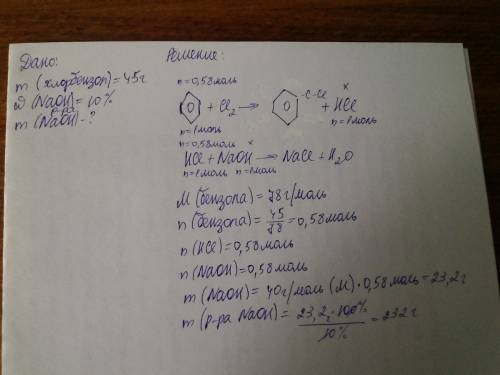 Дано:
m (хлорбензол) = 45г
ω (NaOH) = 10%
m р-ра (NaOH) - ?
Решение:
n = 0,58моль
+ Cl2 → -C-Cl + HCl
x
n = 1моль
n = 1моль
n = 0,58моль
x
HCl + NaOH → NaCl + H2O
n = 1моль n = 1моль
M (бензола) = 78г/моль
n (бензола) = 45/78 = 0,58моль
n (HCl) = 0,58моль
n (NaOH) = 0,58моль
m (NaOH) = 40г/моль (M) · 0,58моль = 23,2г
m (р-ра NaOH) = 23,2г · 100% / 10% = 232г